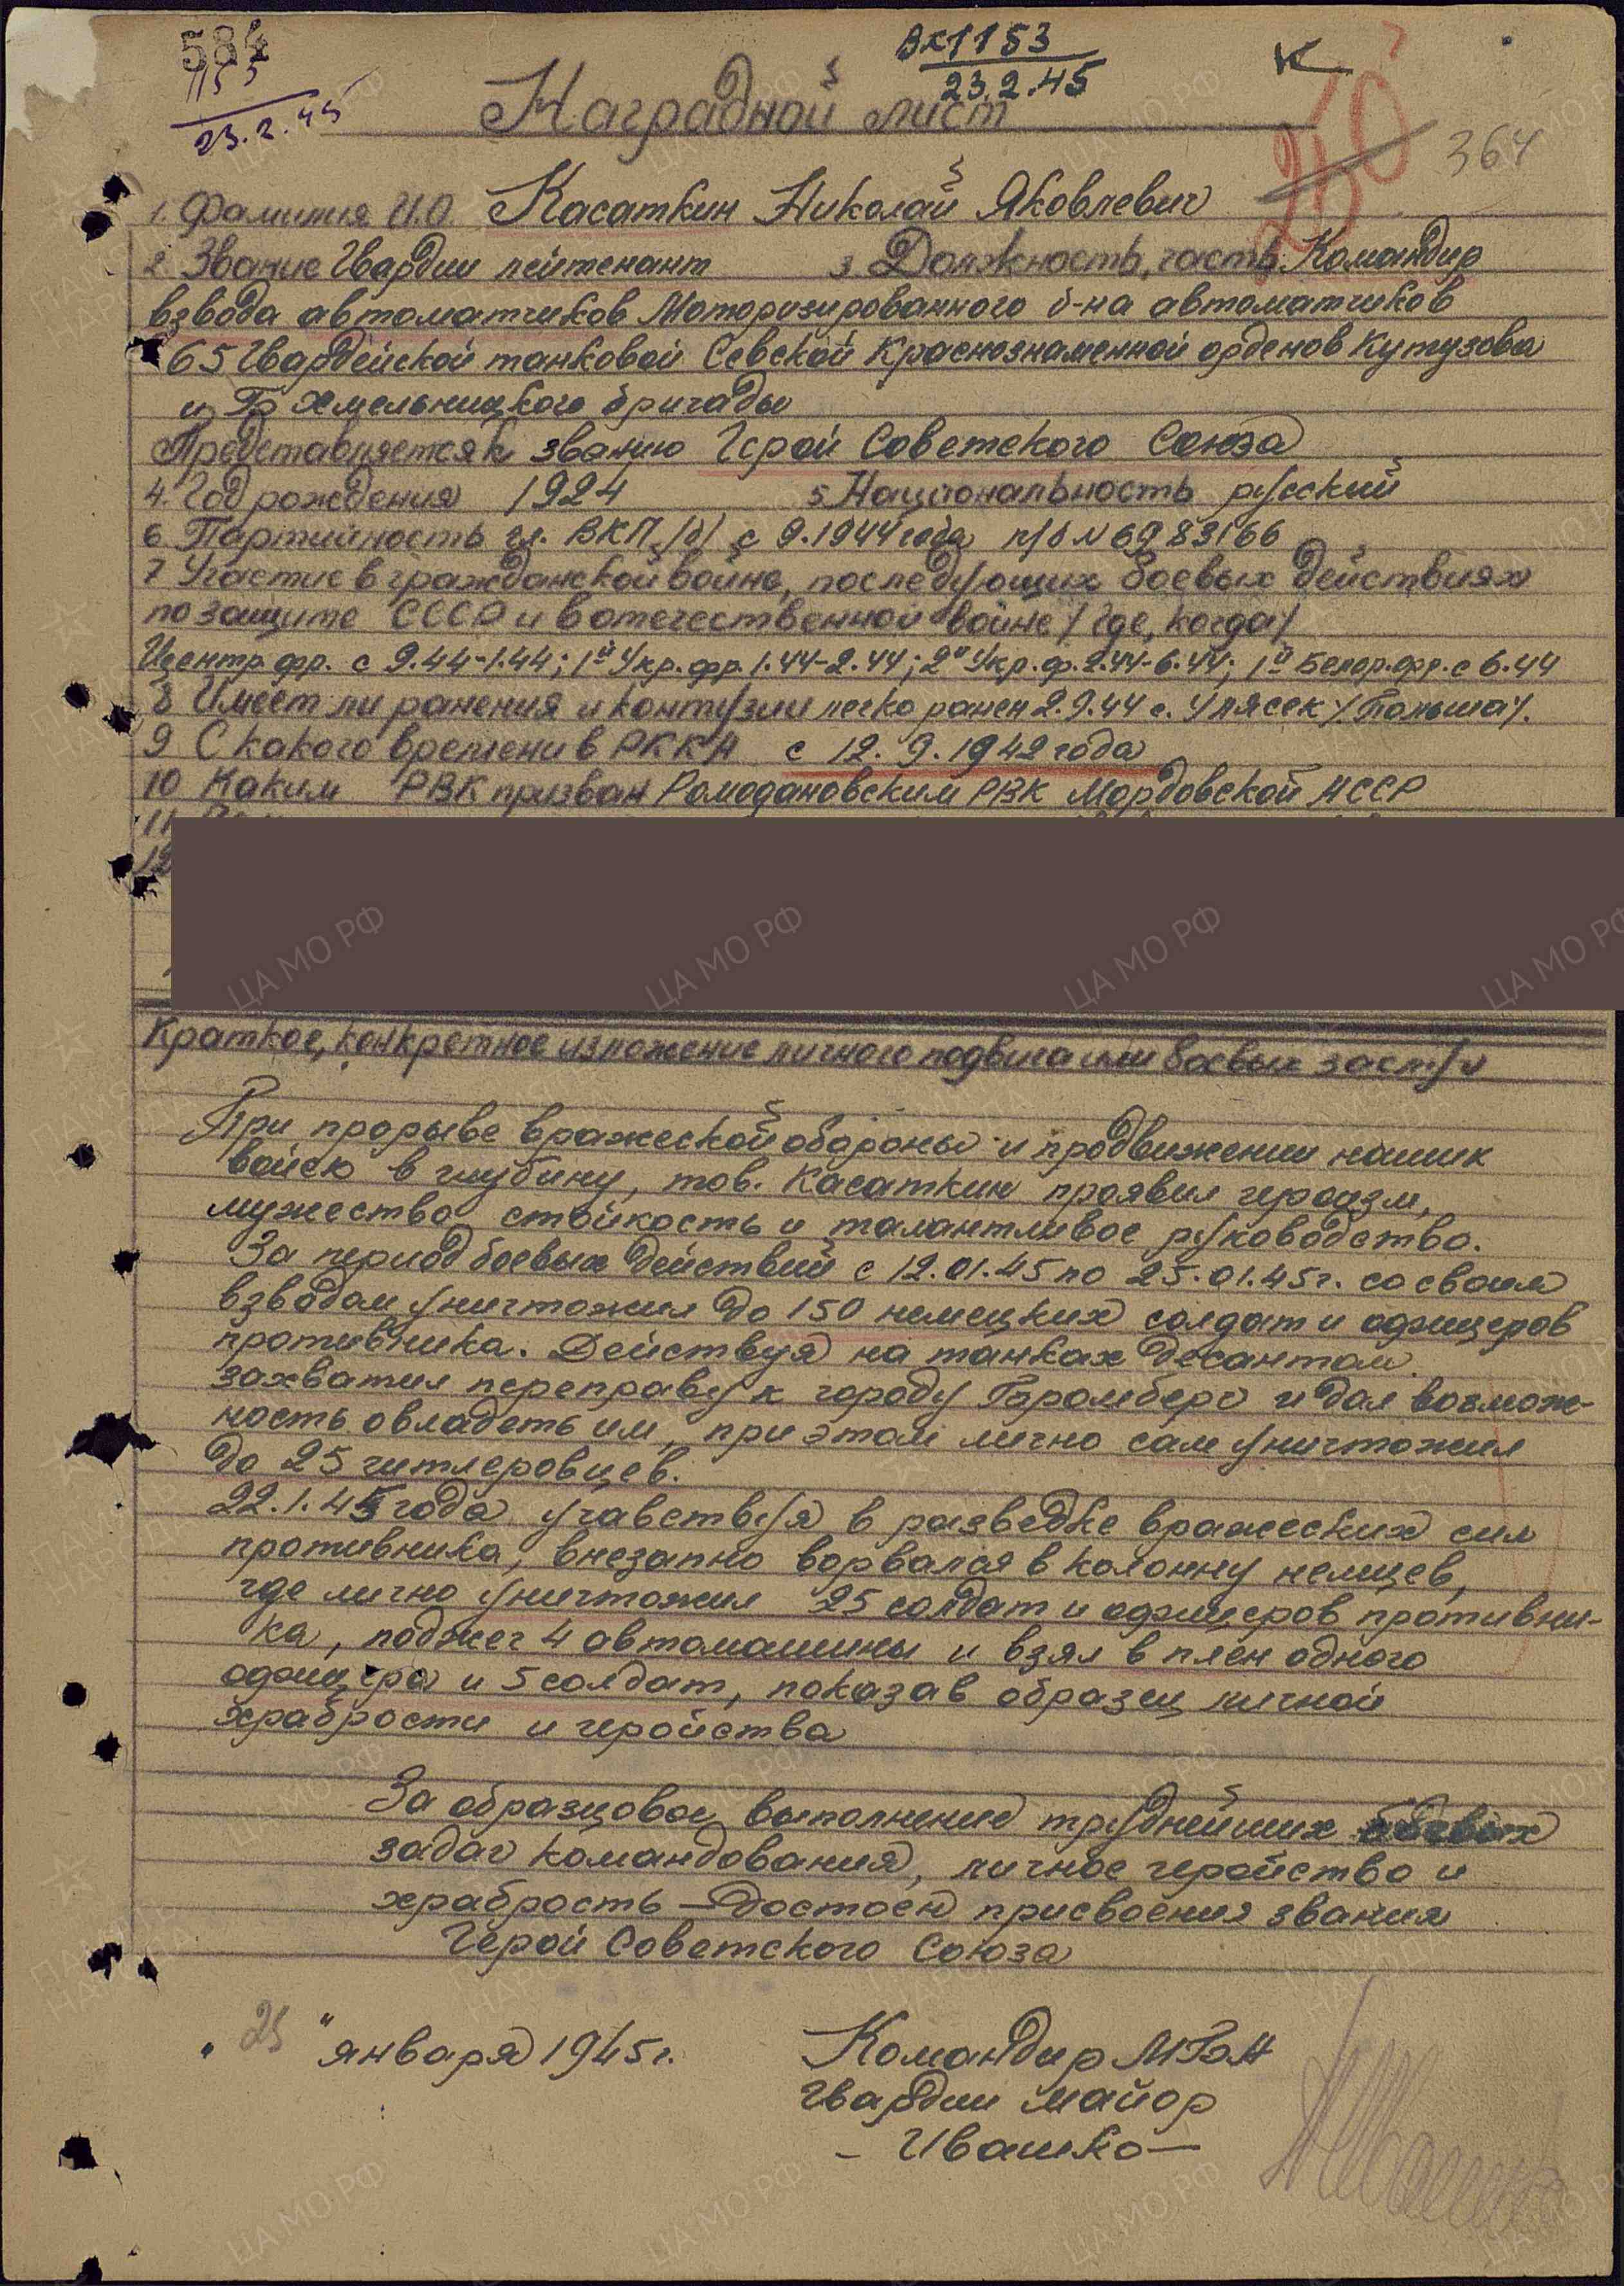 584
1153
23.2.45
Вх 1153
23.2.45
К
250
364
Наградной лист
1. Фамилия И.О. Касаткин Николай Яковлевич
2. Звание Гвардии лейтенант 3. Должность, часть Командир
взвода автоматчиков Моторизированного б-на автоматчиков
65 Гвардейской танковой Севской Краснознаменной орденов Кутузова
и Б Хмельницкого бригады
Представляется к званию Герой Советского Союза
4. Год рождения 1924 5. Национальность русский
6 Партийность чл. ВКП/б/ с 9.1944 года п/б № 6983166
7 Участие в гражданской войне, последующих боевых действиях
по защите СССР и в отечественной войне / где, когда/
Центр.фр. с 9.44-1.44; 1й Укр.фр. 1.44-2.44; 2й Укр.ф. 2.44-6.44; 1й Белор.фр. с 6.44
8 Имеет ли ранения и контузии легко ранен 2.9.44 с. Улясек /Польша/.
9 С какого времени в РККА с 12.9.1942 года
10 Каким РВК призван Ромодановским РВК Мордовской АССР
11
12
Краткое, конкретное изложение личного подвига или боевых заслуг
При прорыве вражеской обороны и продвижении наших
войск в глубину, тов. Касаткин проявил героизм,
мужество стойкость и талантливое руководство.
За период боевых действий с 12.01.45 по 25.01.45г. со своим
взводом уничтожил до 150 немецких солдат и офицеров
противника. Действуя на танках десантом
захватил переправу к городу Бромберг и дал возмож-
ность овладеть им, при этом лично сам уничтожил
до 25 гитлеровцев.
22.1.45 года учавствуя в разведке вражеских сил
противника, внезапно ворвался в колонну немцев,
где лично уничтожил 25 солдат и офицеров противни-
ка, поджег 4 автомашины и взял в плен одного
офицера и 5 солдат, показав образец личной
храбрости и геройства
За образцовое выполнение труднейших боевых
задач командования, личное геройство и
храбрость – достоен присвоения звания
Герой Советского Союза
" 25 " января 1945г.
Командир МБА
Гвардии майор
– Ивашко –